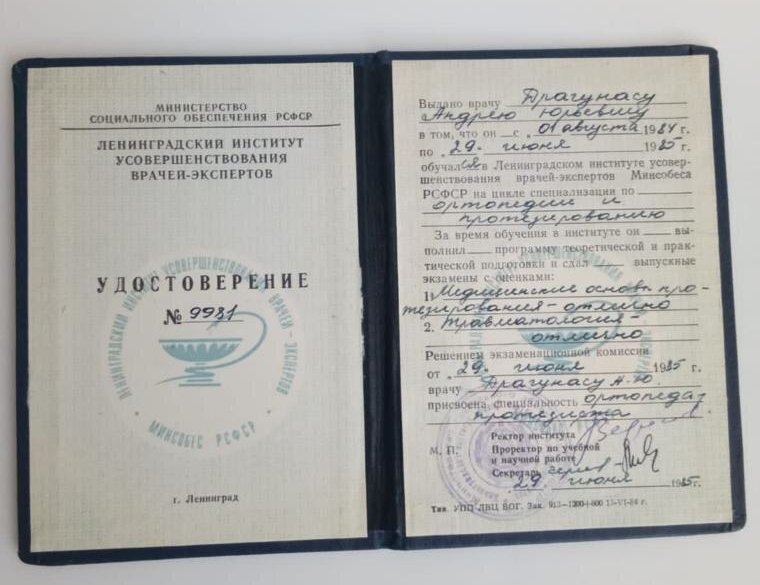 МИНИСТЕРСТВО
СОЦИАЛЬНОГО ОБЕСПЕЧЕНИЯ РСФСР
ЛЕНИНГРАДСКИЙ ИНСТИТУТ
УСОВЕРШЕНСТВОВАНИЯ
ВРАЧЕЙ-ЭКСПЕРТОВ
УДОСТОВЕРЕНИЕ
№ 9981
ЛЕНИНГРАДСКИЙ ИНСТИТУТ УСОВЕРШЕНСТВОВАНИЯ ВРАЧЕЙ-ЭКСПЕРТОВ
МИНСОБЕС РСФСР
г. Ленинград
Выдано врачу Драгунасу
Андрею Юрьевичу
в том, что он с „01 августа 1984 г.
по „29. июня 1985 г.
обучался в Ленинградском институте усовер-
шенствования врачей-экспертов Минсобеса
РСФСР на цикле специализации по
ортопедии и
протезированию
За время обучения в институте он вы-
полнил программу теоретической и прак-
тической подготовки и сдал выпускные
экзамены с оценками:
1. Медицинские основы про-
тезирования - отлично
2. Травматология -
отлично
Решением экзаменационной комиссии
от „29. июня 1985 г.
врачу Драгунасу А.Ю.
присвоена специальность ортопеда
протезиста
Ректор института
М. П. Проректор по учебной
и научной работе
Секретарь
„29. июня 1985 г.
Тип. УПП ЛВЦ ВОГ. Зак. 913—1200+800 13-VI-84 г.